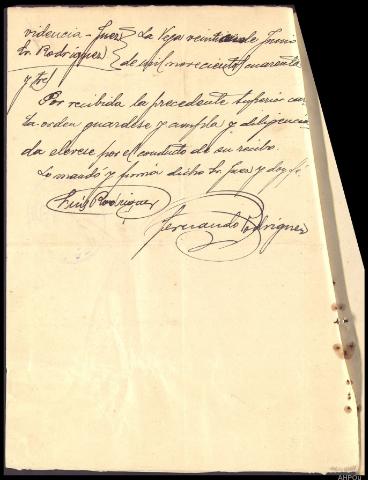 videncia - Juez } La Vega veintidos de Junio
Sr. Rodriguez } de mil novecientos cuarenta
y tres
Por recibida la precedente superior car
ta orden guardese y cumpla y diligencia
da elevese por el conducto de su recibo.
Lo mandó y firma dicho Sr. Juez y doy fé
Luis Rodriguez
Fernando Rodriguez
AHPOu